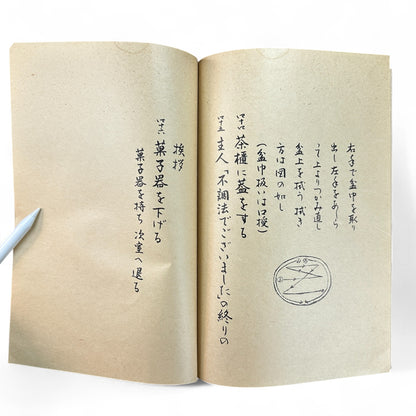 右手で盆巾を取り
出し左手をあしら
って上よりつかみ直し
盆上を拭う 拭き
方は図の如し
(盆巾扱いは口授)
四十四 茶櫃に蓋をする
四十五 主人「不調法でございました」の終りの
挨拶
四十六 菓子器を下げる
菓子器を持ち 次室へ退る